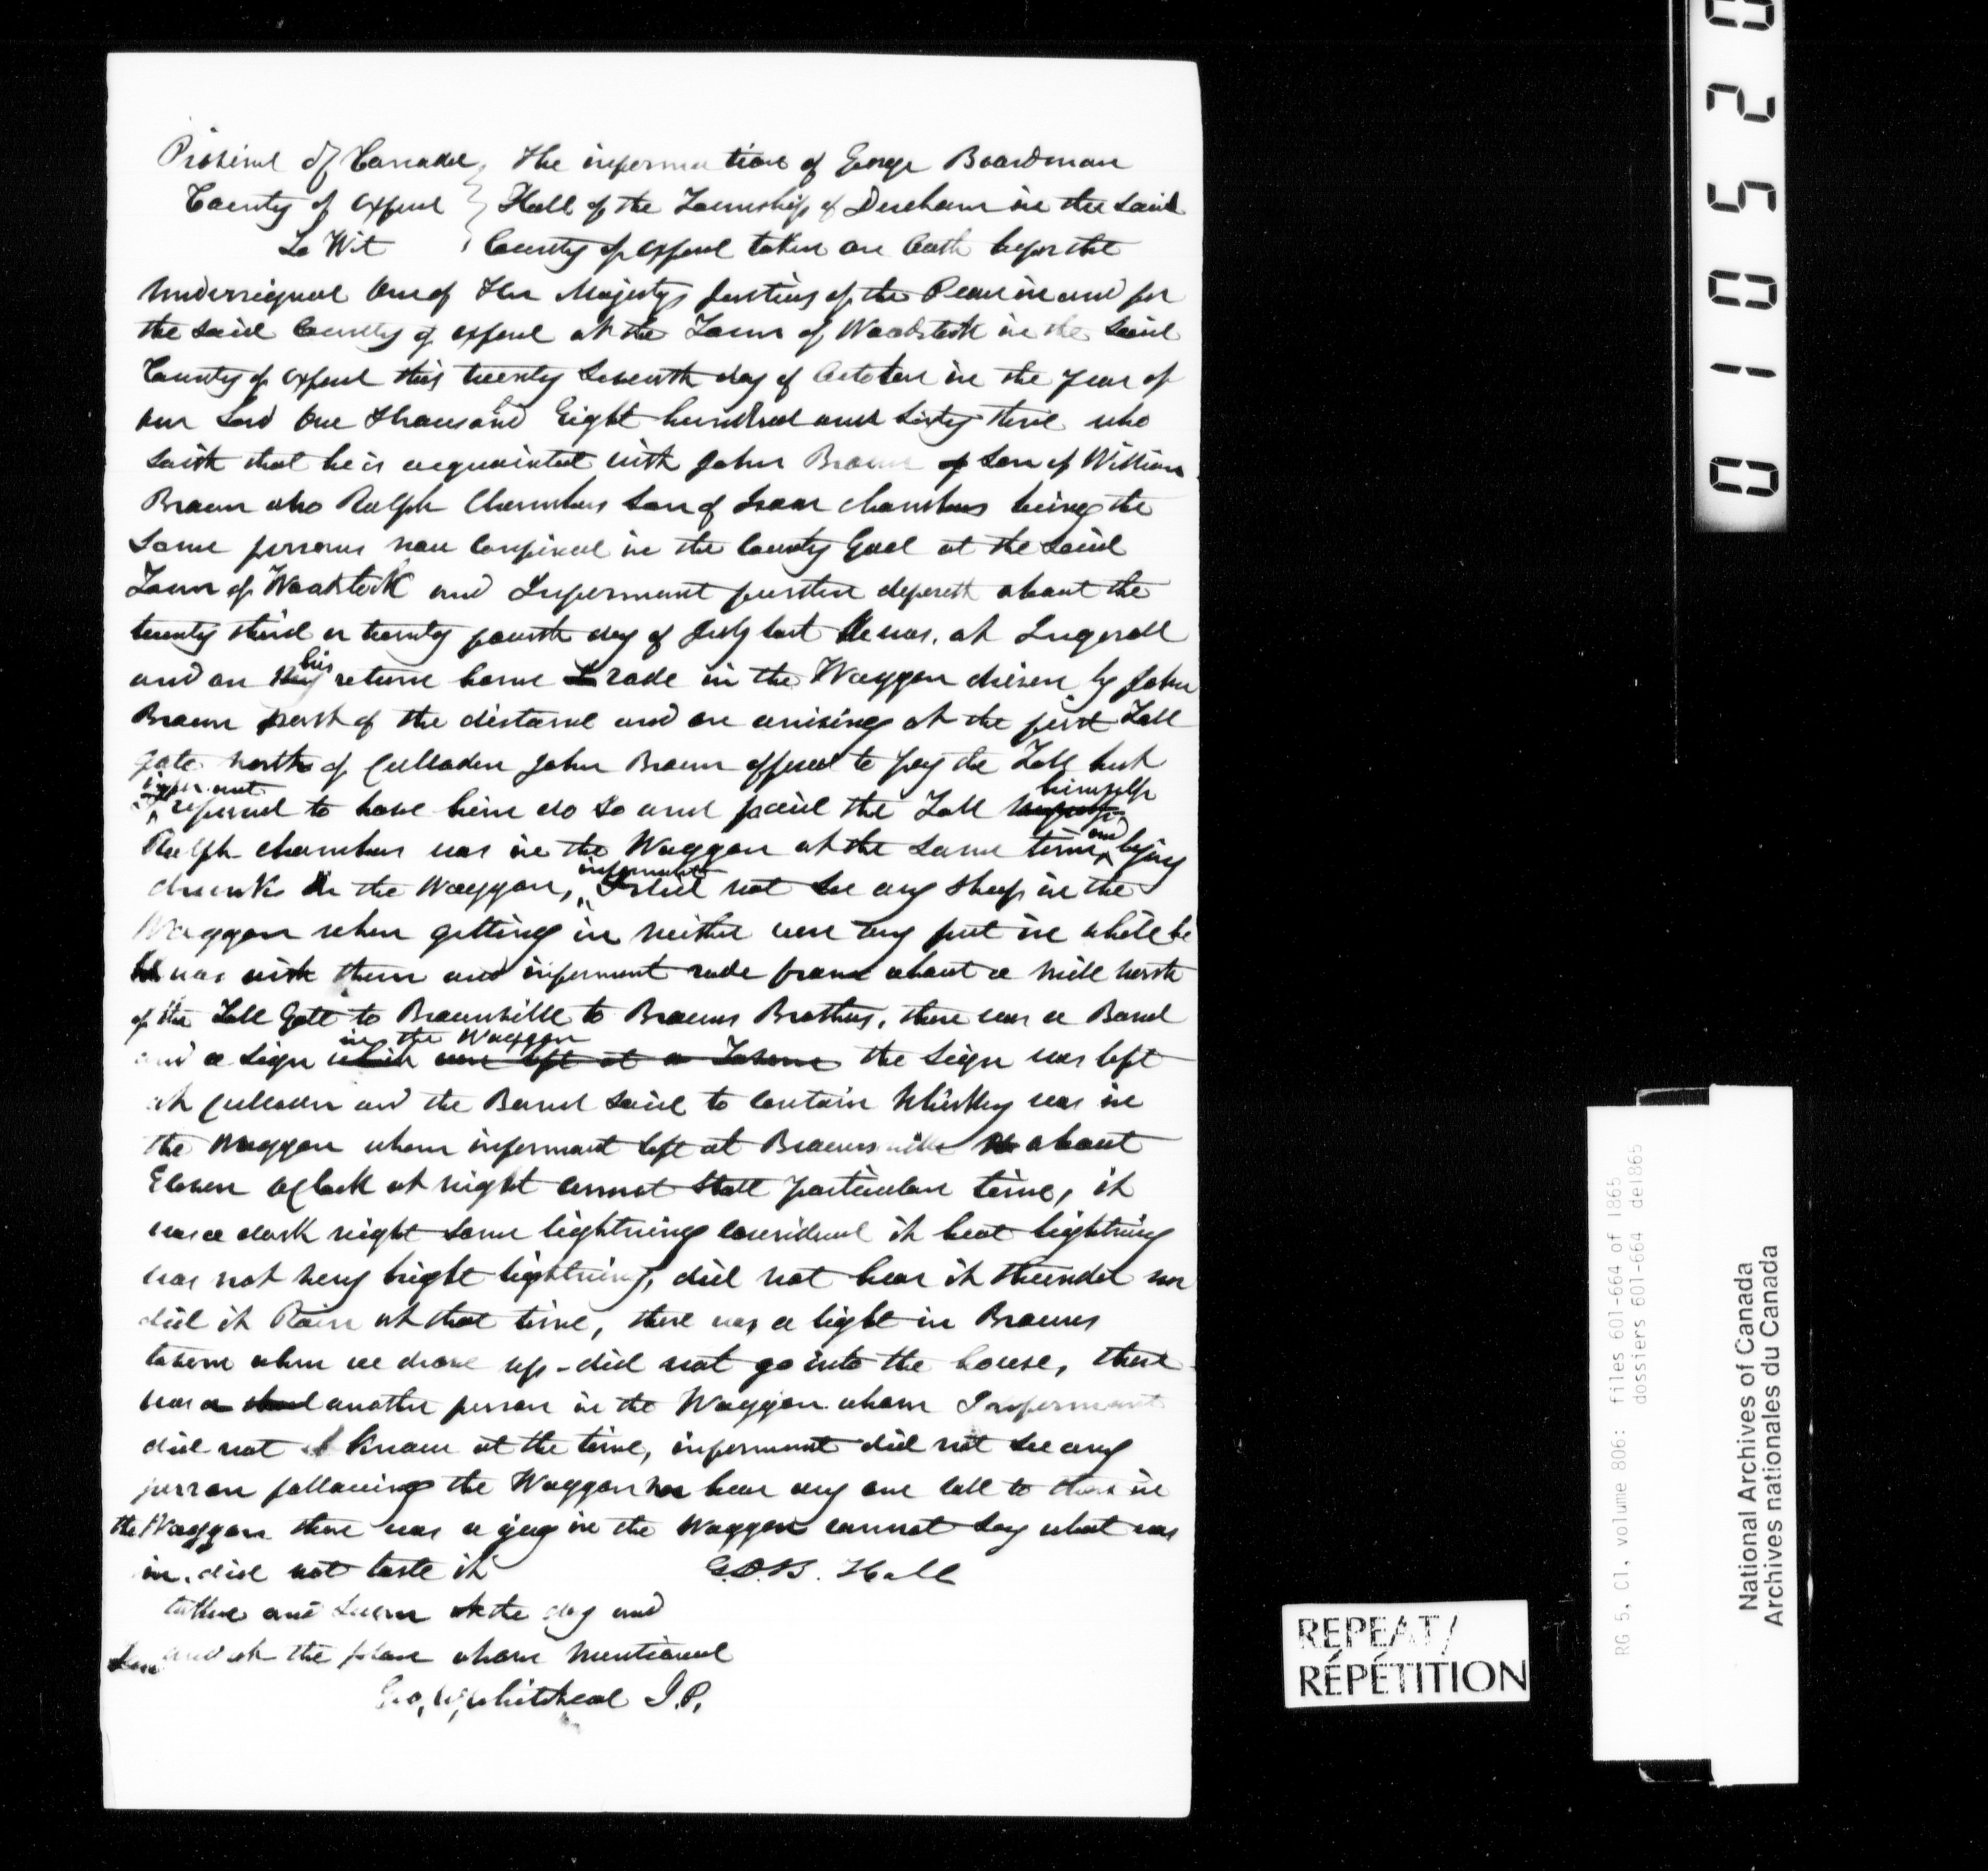 Province of Canada, The information of George Boardman
County of Oxford } Hall of the Township of Dereham in the said
To Wit County of Oxford taken on Oath before the
Undersigned One of Her Majestys Justices of the Peace in and for
the said County of Oxford at the Town of Woodstock in the said
County of Oxford this twenty Seventh day of October in the year of
our Lord One thousand Eight hundred and Sixty three who
saith that he is acquainted with John Brown of Son of William
Brown also Ralph Chambers Son of Isaac Chambers being the
Same persons now Confined in the County Gaol at the Said
Town of Woodstock and Informant further deposeth about the
twenty third or twenty fourth day of July last He was at Ingersoll
and on my his return home I rode in the Waggon driven by John
Brown part of the distance and on arriving at the first Toll
gate north of Culloden John Brown offered to pay the Toll but
I informant refused to have him do so and paid the Toll myself himself
Ralph Chambers was in the Waggon at the same time and lying
drunk in the Waggon, I informant did not see any Sheep in the
Waggon when getting in neither were any put in while he
was with them and informant rode from about a mile north
of the Toll Gate to Brownsville to Browns Brothers, there was a Barrel
and a Sign in the Waggon which were left at a Tavern the Sign was left
at Culloden and the Barrel said to contain Whiskey was in
the Waggon when informant left at Brownsville about
Eleven oClock at night cannot State particular time, it
was a dark night some lightning considered it heat lightning
was not very bright lightning, did not hear it thunder nor
did it Rain at that time, there was a light in Browns
tavern when we drove up - did not go into the house, there
was a another person in the Waggon whom Informant
did not Know at the time, informant did not see any
person following the Waggon nor hear any one call to those in
the Waggon there was a jug in the Waggon cannot say what was
in, did not taste it G.B. Hall
taken and Sworn the day and
and at the place above mentioned
Geo, W, Whitehead J.P.
0 1 0 5 2 0
REPEAT/
RÉPÉTITION
RG 5, C1, volume 806: files 601-664 of 1865
dossiers 601-664 de1865
National Archives of Canada
Archives nationales du Canada